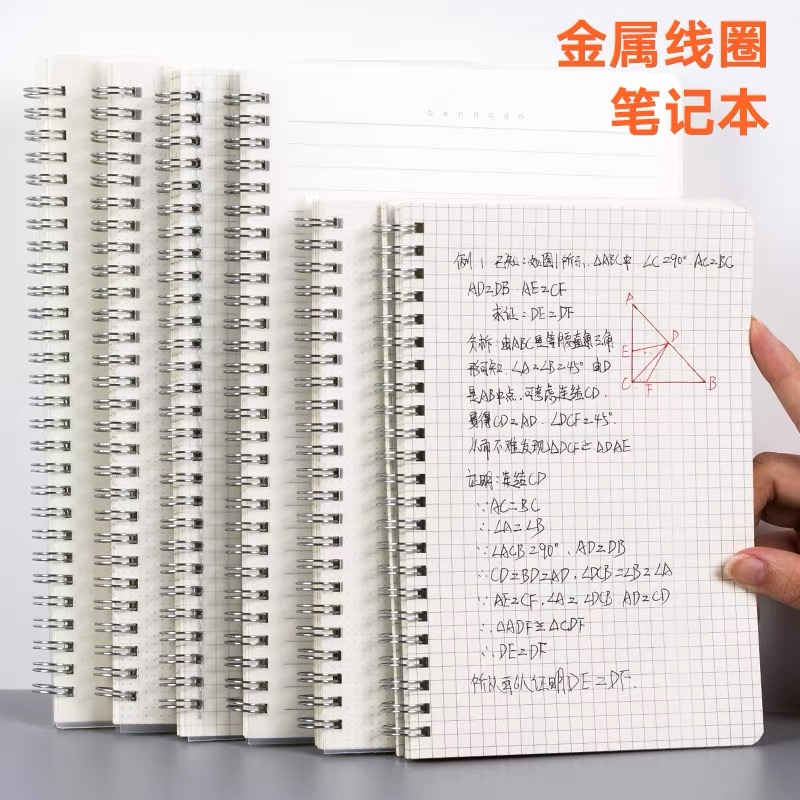 金属线圈
笔记本
bendada
例1 已知:如图1所示,△ABC中 ∠C=90° AC=BC
AD=DB AE=CF
求证:DE=DF
分析:由ABC是等腰直角三角
形可知,∠A=∠B=45° 由D
是AB中点,可考虑连结CD,
易得CD=AD,∠DCF=45°.
从而不难发现△DCF≌△DAE
证明:连结CD
∵AC=BC
∴∠A=∠B
∵∠ACB=90°,AD=DB
∴CD=BD=AD,∠DCB=∠B=∠A
∵AE=CF,∠A=∠DCB AD=CD
∴△ADF≌△CDF
∴DE=DF
所以可以证明DE=DF.
A
D
E
C
F
B